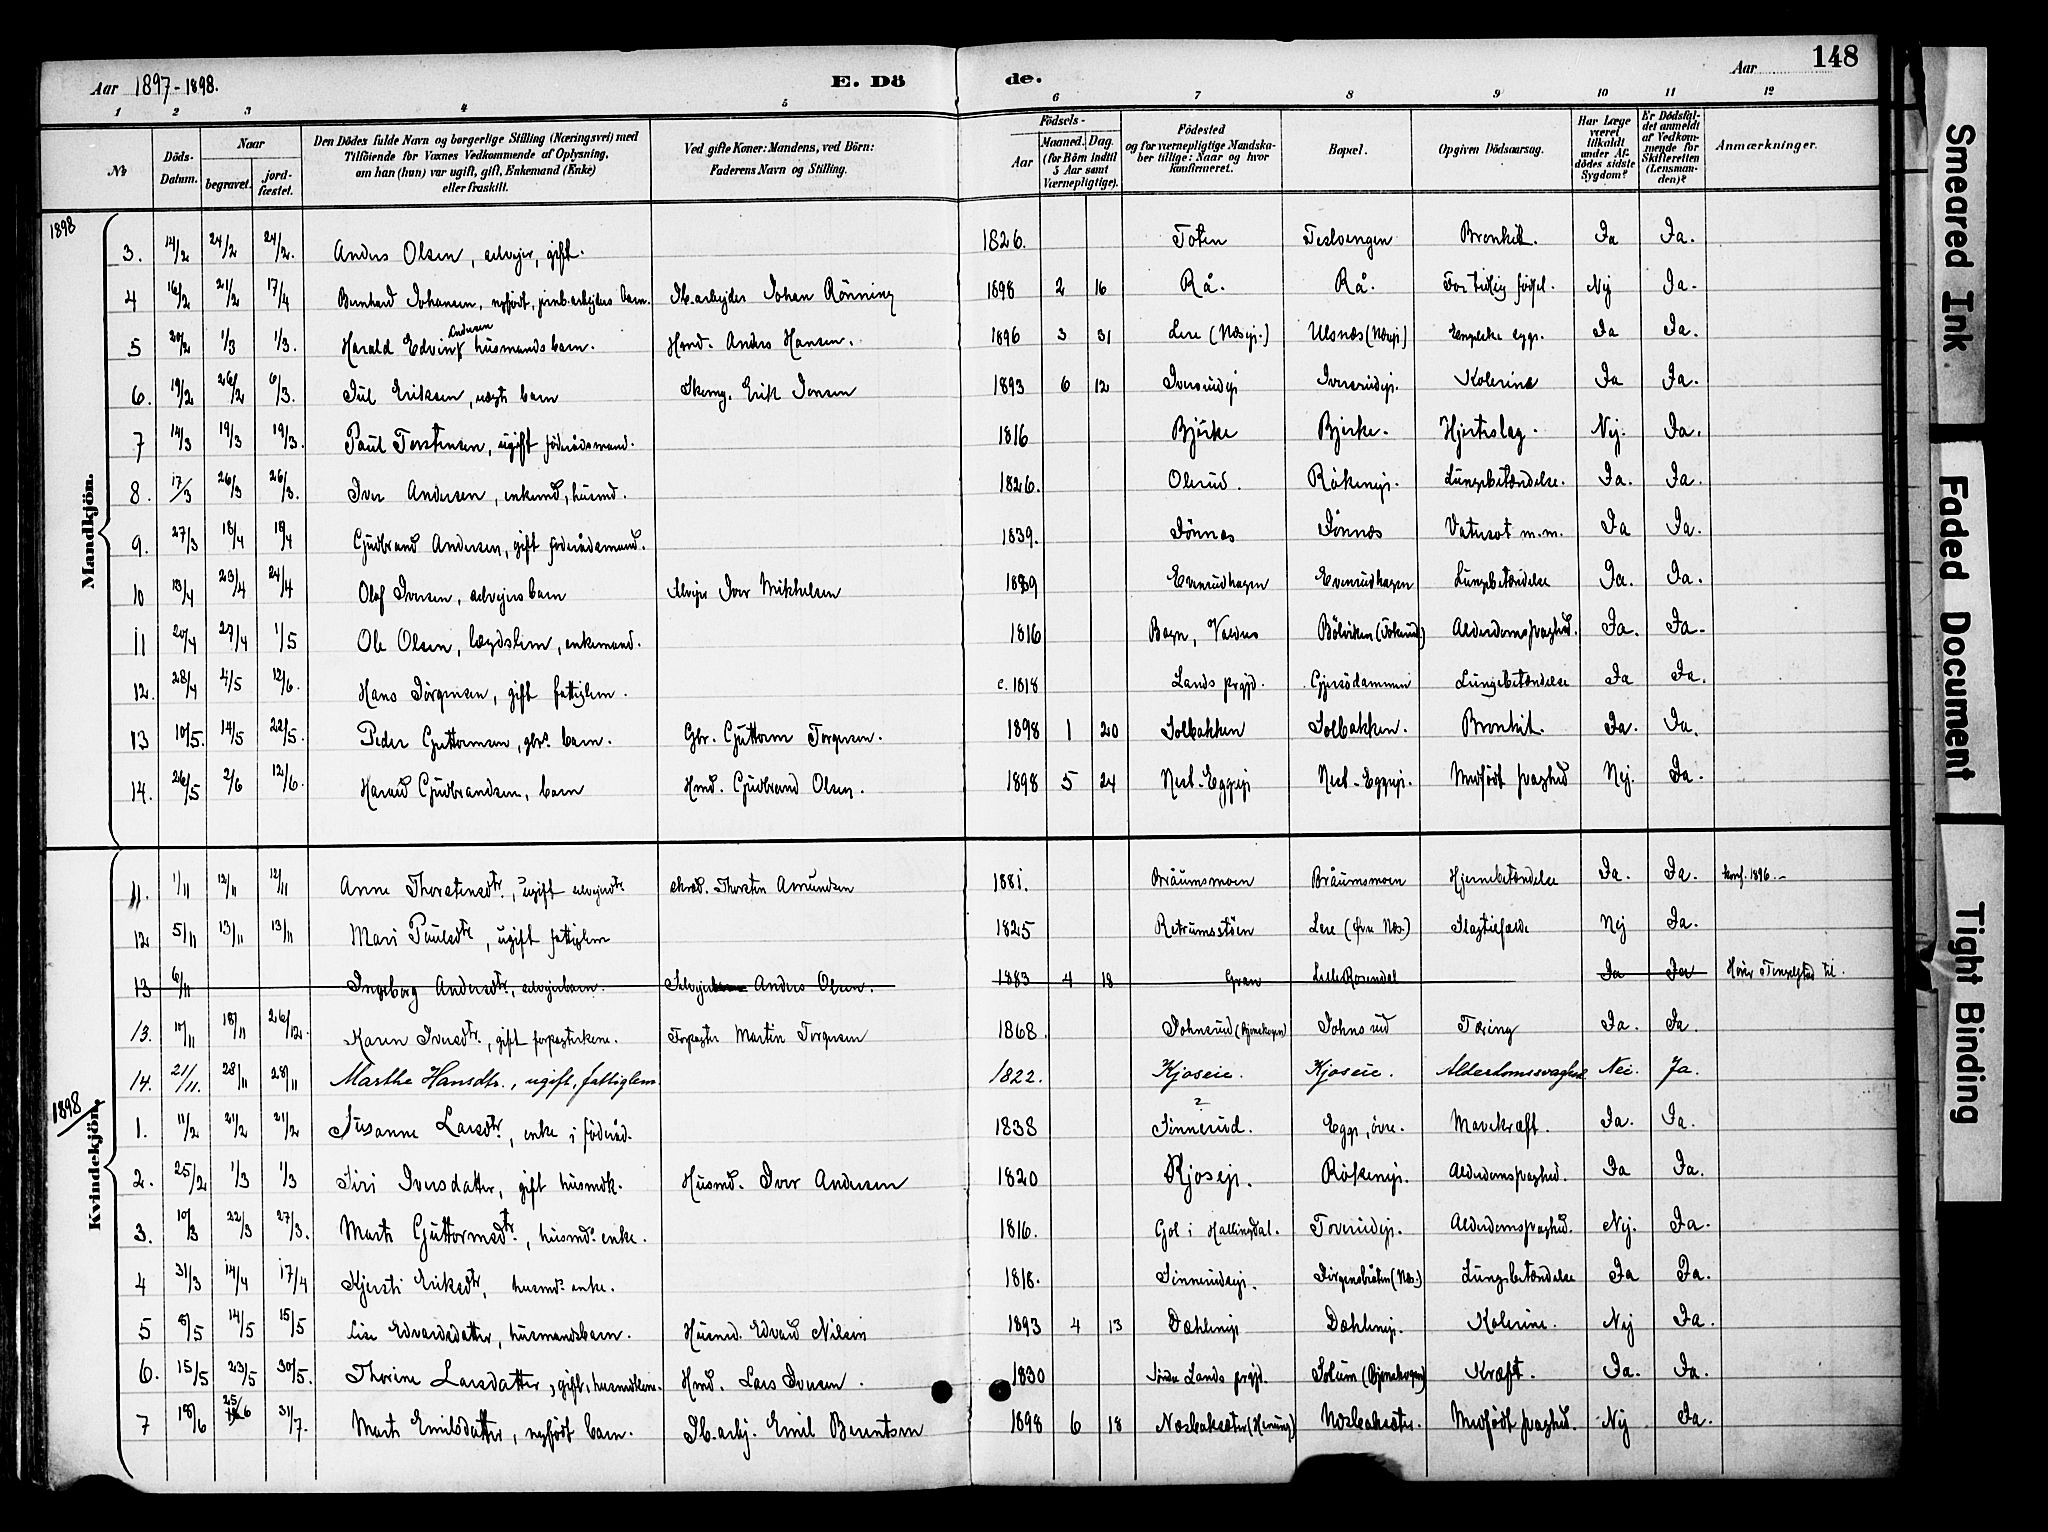 148
Aar 1897-1898. E. Dö de. Aar
1 2 3 4 5 6 7 8 9 10 11 12
No Döds-Datum. Naar begravet. jordfæstet. Den Dödes fulde Navn og borgerlige Stilling (Næringsvei) med Tilföiende for Voxnes Vedkommende af Oplysning, om han (hun) var ugift, gift, Enkemand (Enke) eller fraskilt. Ved gifte Koner: Mandens, ved Börn: Faderens Navn og Stilling. Födsels- Aar Maaned. Dag. (for Börn indtil 5 Aar samt Værnepligtige). Födested og for værnepligtige Mandskaber tillige: Naar og hvor konfirmeret. Bopæl. Opgiven Dödsaarsag. Har Læge været tilkaldt under Afdödes sidste Sygdom? Er Dödsfaldet anmeldt af Vedkommende for Skifteretten (Lensmanden)? Anmærkninger.
1898
Mandkjön.
3. 14/2 24/2 24/2. Anders Olsen, selvejer, gift. 1826. Toten Bronkit. Ja Ja.
4 16/2 21/2 17/4 Bernhard Johansen, nyfödt, jernb.arbejders barn. Jb.arbejder Johan Rönning 1898 2 16 Rå. Rå. For tidlig födsel. Nej Ja.
5 20/2 1/3 1/3. Harald Edvin Andersen husmandsbarn. Hmd. Anders Hansen. 1896 3 31 Lere (Næsejs.) Ulsnæs (Næsejs) Ja Ja.
6. 19/2 26/2 6/3. Jul Eriksen, uægte barn Skomg. Erik Jonsen 1893 6 12 Iversrudejs Iversrudejs. Kolerina Ja Ja.
7 14/3 19/3 19/3. Paul Torstensen, ugift föderådsmand. 1816 Björke Bjerke. Hjerteslag. Nej. Ja.
8. 17/3 26/3 26/3. Iver Andersen, enkemd, husmd. 1826. Olsrud. Rökenejs. Lungebetændelse. Ja. Ja.
9. 27/3 18/4 18/4 Gudbrand Andersen, gift föderådsmand. 1839. Jönnæs Jönnæs Vatersot m.m. Ja Ja.
10 13/4 23/4 24/4 Olaf Iversen, selvejersbarn Selvejer Iver Mikkelsen 1889 Evensrudhagen Evensrudhagen Lungebetændelse Ja. Ja.
11 20/4 27/4 1/5 Ole Olsen, lægdslem, enkemand. 1816 Bagn, Valdres Bölviken Alderdomssvaghed. Ja. Ja.
12. 28/4 4/5 12/6. Hans Jörgensen, gift fattiglem. c. 1818 Lands prgjd. Lungebetændelse Ja Ja.
13 10/5. 14/5 22/5. Peder Guttormsen, gbrs. barn. Gbr. Guttorm Torgersen. 1898 1 20 Solbakken Solbakken. Bronkit. Ja. Ja.
14. 26/5 2/6 12/6. Harald Gudbrandsen, barn Hmd. Gudbrand Olsen. 1898 5 24 Nest-Eggejs Nest-Eggejs. Medfödt svaghed Nej. Ja.
11. 1/11 12/11 12/11 Anne Thorstensdtr, ugift selvejerdtr Thorsten Amundsen 1881. Bråumsmoen Bråumsmoen Hjernebetændelse Ja. Ja. konf. 1896.
12 5/11 13/11 13/11 Mari Paulsdtr, ugift fattiglem 1825 Retrumsstöen Lere (övre Næs.) Slagtilfælde Nej Ja.
13 6/11 Ingeborg Andersdtr, selvejerbarn. Selvejer Anders Olsen. 1883 4 18 Gran Lille Rosendal Ja Ja Hörer Tingelstad til.
13. 10/11 18/11 26/12. Karen Iversdtr, gift forpagterkone. Forpagter Martin Torgersen 1868. Johnsrud (Bjoneskogen) Johnsrud Tæring Ja. Ja.
14. 21/11. 28/11 28/11 Marthe Hansdtr., ugift, fattiglem 1822. Kjoseie. Kjoseie. Alderdomssvaghed. Nei. Ja.
1898
Kvindekjön.
1. 11/2 21/2 21/2 Susanne Larsdtr, enke i föderåd. 1838 Sinnerud. Egge, övre. Mavekræft. Ja. Ja.
2. 25/2 1/3 1/3 Siri Iversdatter, gift husmdk. Husmd. Iver Andersen 1820 Kjosejs. Rökenejs. Alderdomssvaghed. Ja Ja.
3. 10/3 22/3 27/3. Marte Guttormsdtr, husmds enke. 1816. Gol i Hallingdal. Toverudejs. Alderdomssvaghed. Nej. Ja.
4 31/3 14/4 17/4 Kjersti Eriksdtr, husmds enke. 1818. Sinnerudejs. Jörgensbråten (Næs.) Lungebetændelse Ja Ja.
5 8/5 14/5 15/5 Lise Edvardsdatter, husmandsbarn. Husmd. Edvard Nilsen 1893 4 13 Dæhlenejs Dæhlenejs. Kolerine. Nej Ja.
6. 15/5 23/5 30/5. Thorine Larsdatter, gift, husmdkone. Hmd. Lars Iversen. 1830 Söndre Lands prgjd. Solum (Bjoneskogen) Kræft. Ja. Ja.
7 18/6 25/6 31/7. Marte Emilsdatter, nyfödt barn. Jb.arbj. Emil Berentsen 1898 6 18 Næsbaksæter Næsbaksæter. Medfödt svaghed. Nej Ja.
Smeared Ink
Faded Document
Tight Binding